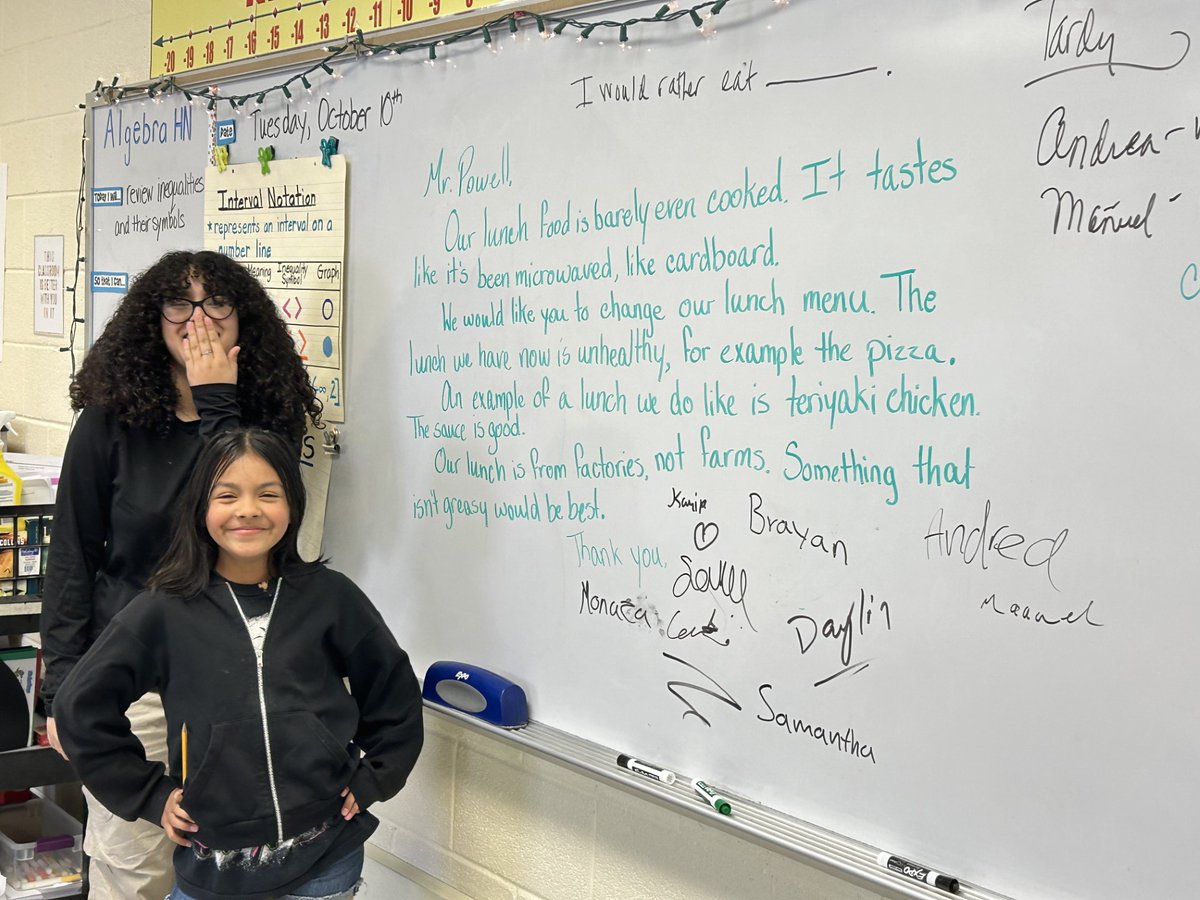 -20 -19 -18 -17 -16 -15 -14 -13 -12 -11 -10 -9 -8
Algebra HN
Date
Tuesday, October 10th
I would rather eat ______.
Tardy
Andrea-
Mañuel-
TODAY I WILL...
review inequalities
and their symbols
SO THAT I CAN...
Interval Notation
*represents an interval on a
number line
Meaning Inequality Symbol Graph
< >
THIS
CLASSROOM
IS BETTER
WITH YOU
IN IT
Mr. Powell,
Our lunch food is barely even cooked. It tastes
like it's been microwaved, like cardboard.
We would like you to change our lunch menu. The
lunch we have now is unhealthy, for example the pizza.
An example of a lunch we do like is teriyaki chicken.
The sauce is good.
Our lunch is from factories, not farms. Something that
isn't greasy would be best.
Thank you,
Brayan
Andrea
Daylin
Samantha
EXPO
EXPO